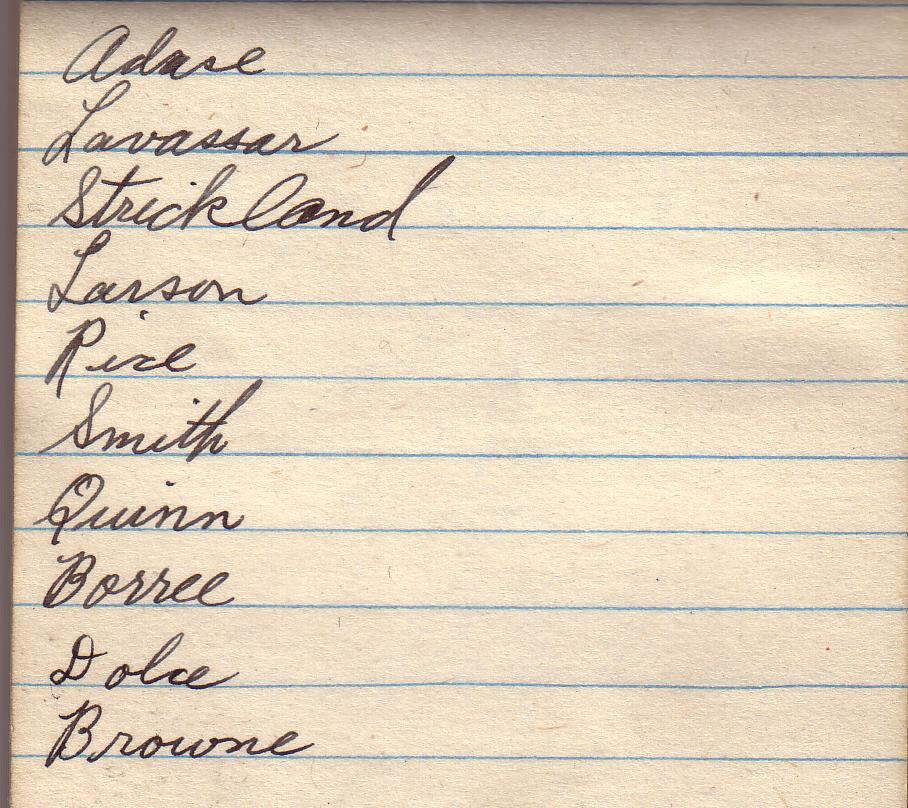 Adase
Lavassar
Strickland
Larson
Rice
Smith
Quinn
Borree
Dolce
Browne